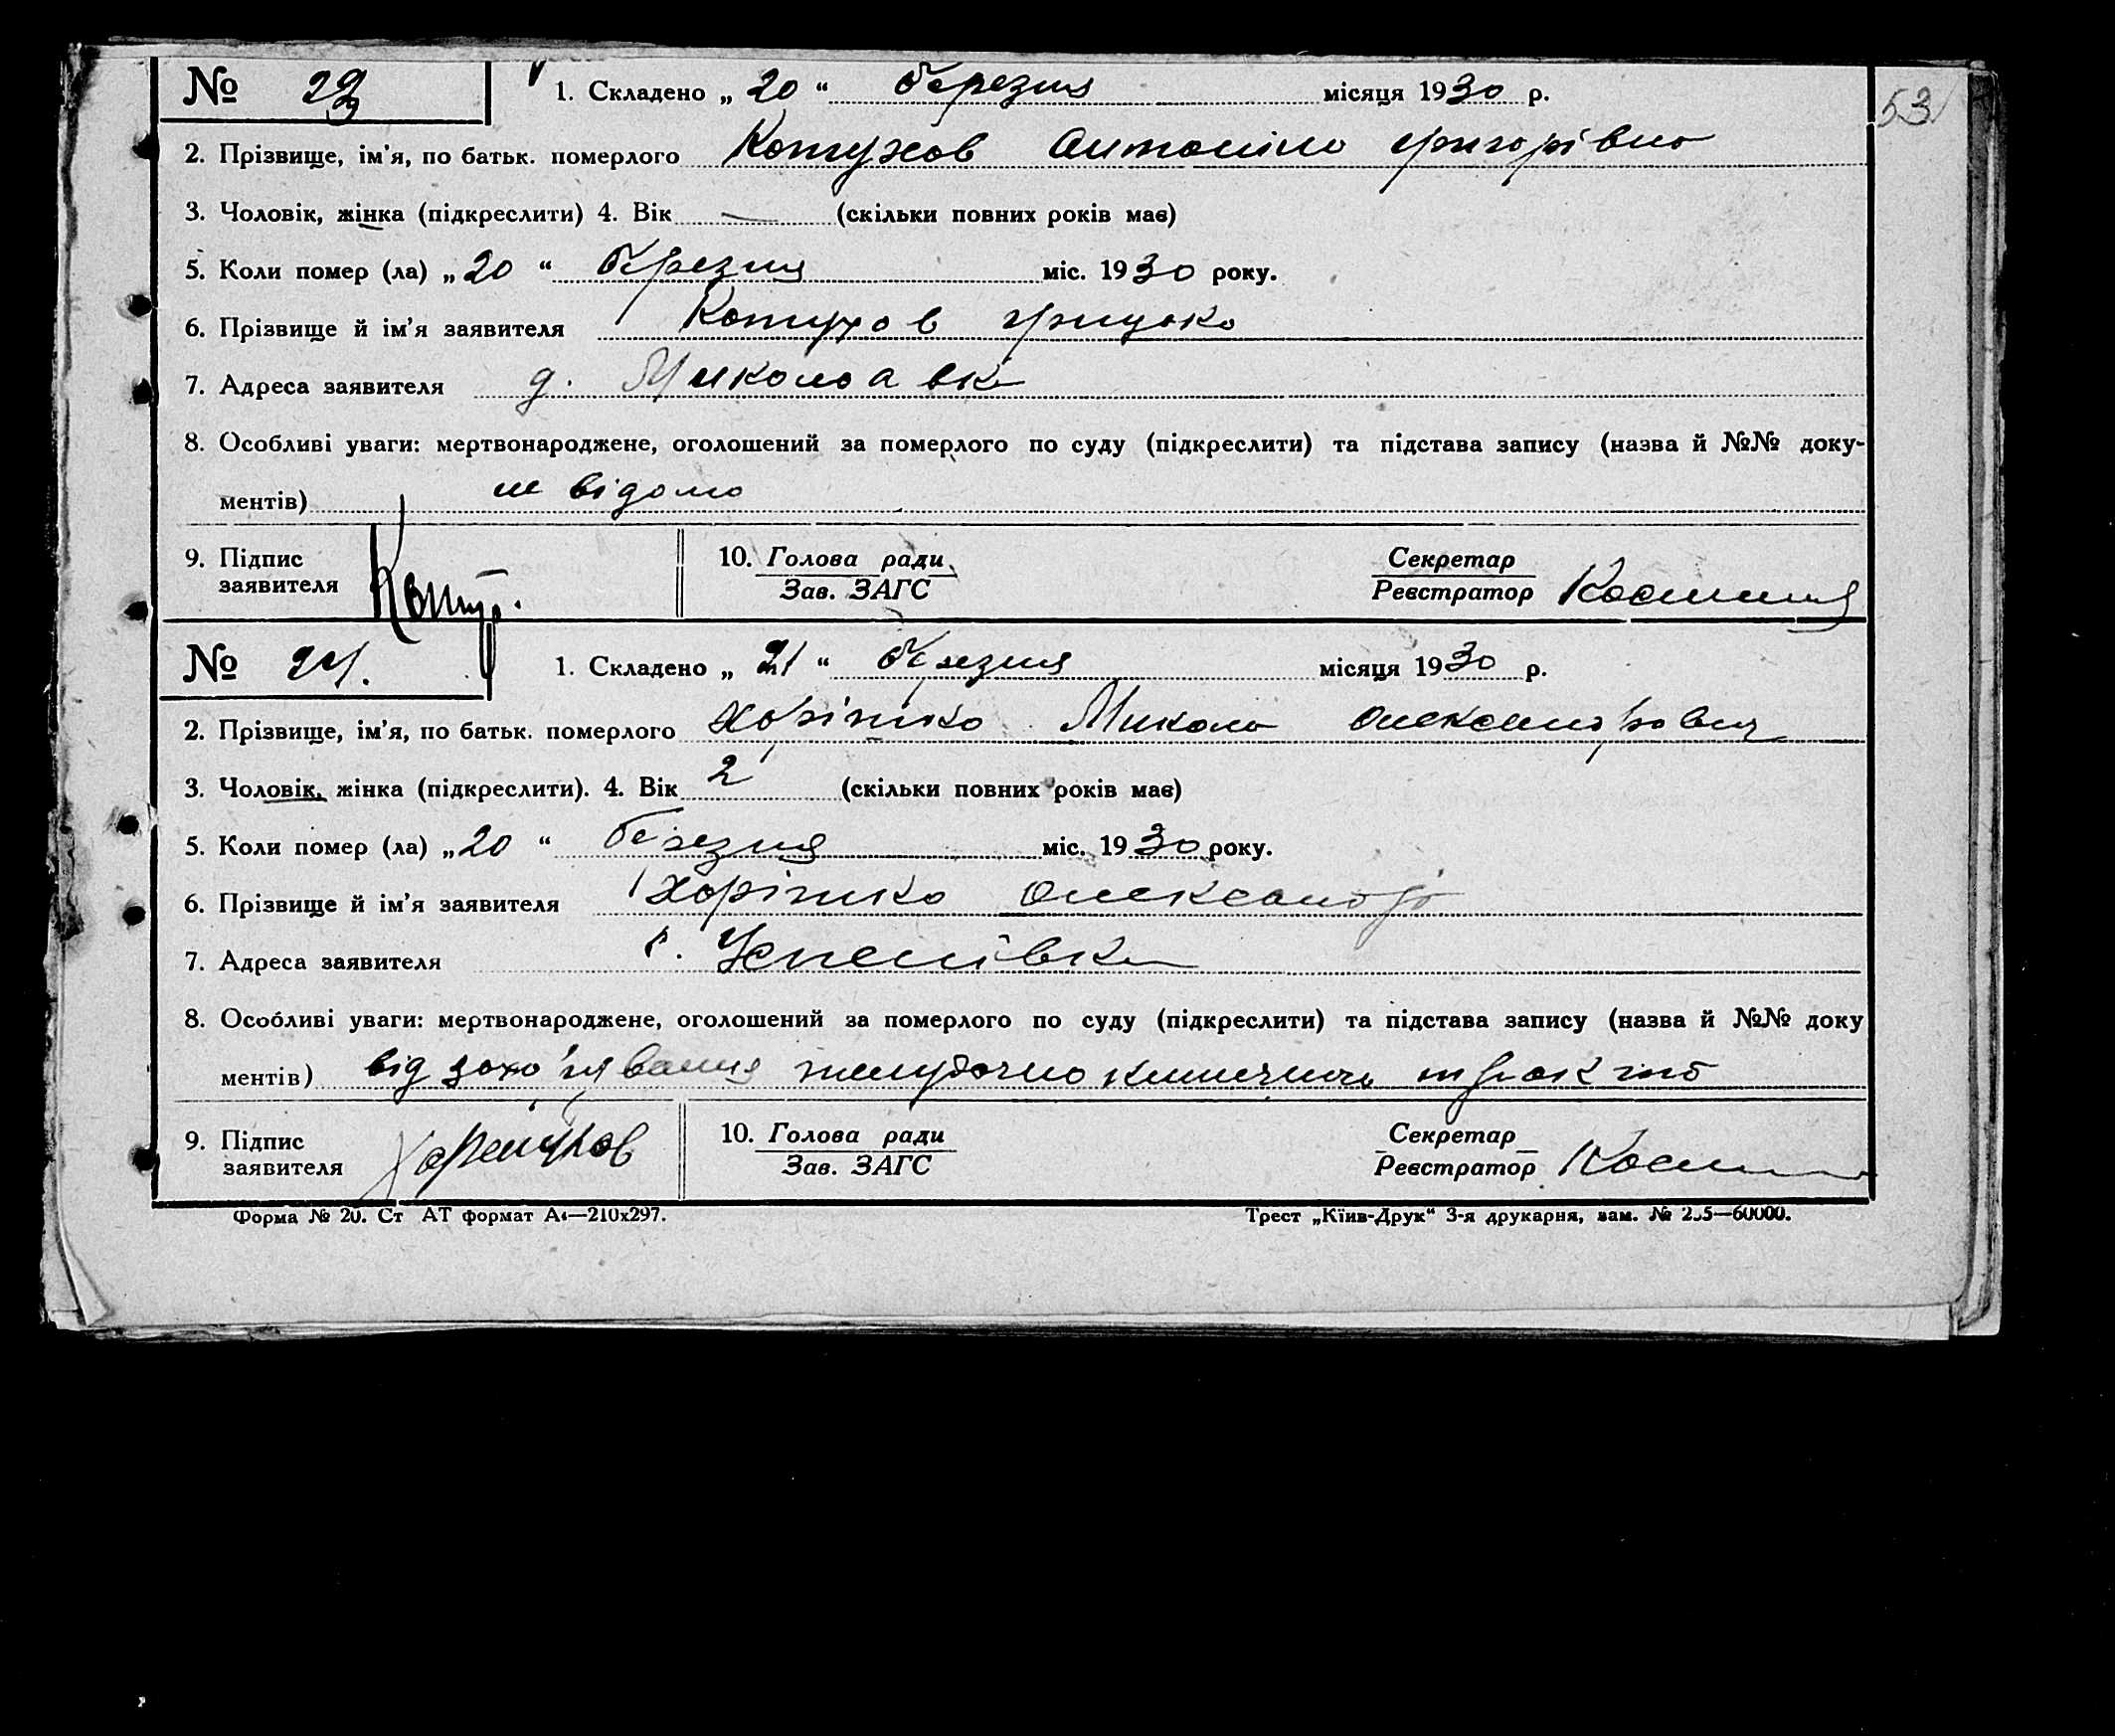 53
№ 23 1. Складено „ 20 “ березня місяця 1930 р.
2. Прізвище, ім’я, по батьк. померлого Котухов Антоніна Григорівна
3. Чоловік, жінка (підкреслити) 4. Вік — (скільки повних років має)
5. Коли помер (ла) „ 20 “ березня міс. 1930 року.
6. Прізвище й ім’я заявителя Котухов Грицько
7. Адреса заявителя д. Миколаавка
8. Особливі уваги: мертвонароджене, оголошений за померлого по суду (підкреслити) та підстава запису (назва й №№ доку-
ментів) не відомо
9. Підпис заявителя 10. Голова ради Секретар
Зав. ЗАГС Реєстратор
№ 24. 1. Складено „ 21 “ березня місяця 1930 р.
2. Прізвище, ім’я, по батьк. померлого Микола Олександрович
3. Чоловік, жінка (підкреслити). 4. Вік 2 (скільки повних років має)
5. Коли помер (ла) „ 20 “ березня міс. 1930 року.
6. Прізвище й ім’я заявителя Олександр
7. Адреса заявителя с. Успенівка
8. Особливі уваги: мертвонароджене, оголошений за померлого по суду (підкреслити) та підстава запису (назва й №№ доку
ментів) від
9. Підпис заявителя 10. Голова ради Секретар
Зав. ЗАГС Реєстратор
Форма № 20. Ст АТ формат А4—210х297. Трест „Київ-Друк“ 3-я друкарня, зам.